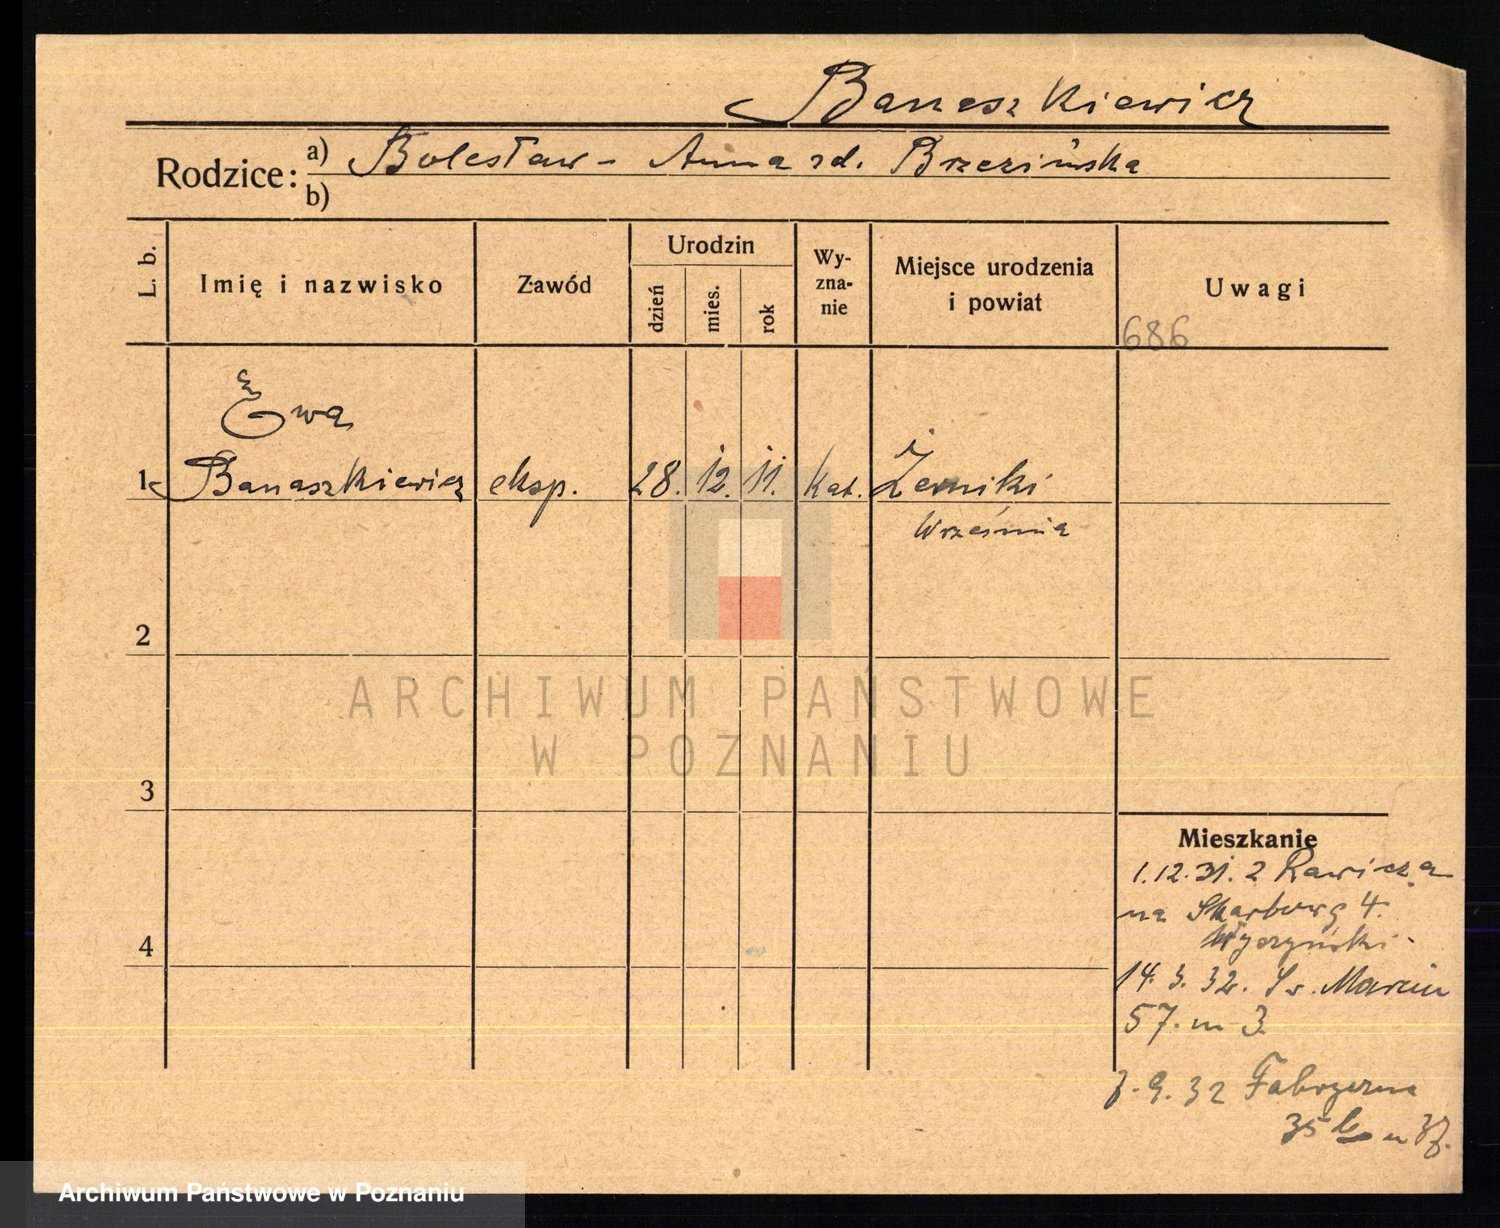 Banaszkiewicz
Rodzice: a) Bolesław - Anna zd. Brzezińska
b)
L. b.
Imię i nazwisko
Zawód
Urodzin
dzień
mies.
rok
Wy-
zna-
nie
Miejsce urodzenia
i powiat
Uwagi
686
Ewa
1 Banaszkiewicz eksp. 28. 12. 11. Kat. Żerniki
Września
2
3
4
Mieszkanie
1.12.31. z Rawicza
na Skarbową 4.
14. 3. 32. Św. Marcin
57. m 3.
7. 9. 32
35 m 37.
ARCHIWUM PAŃSTWOWE
W POZNANIU
Archiwum Państwowe w Poznaniu